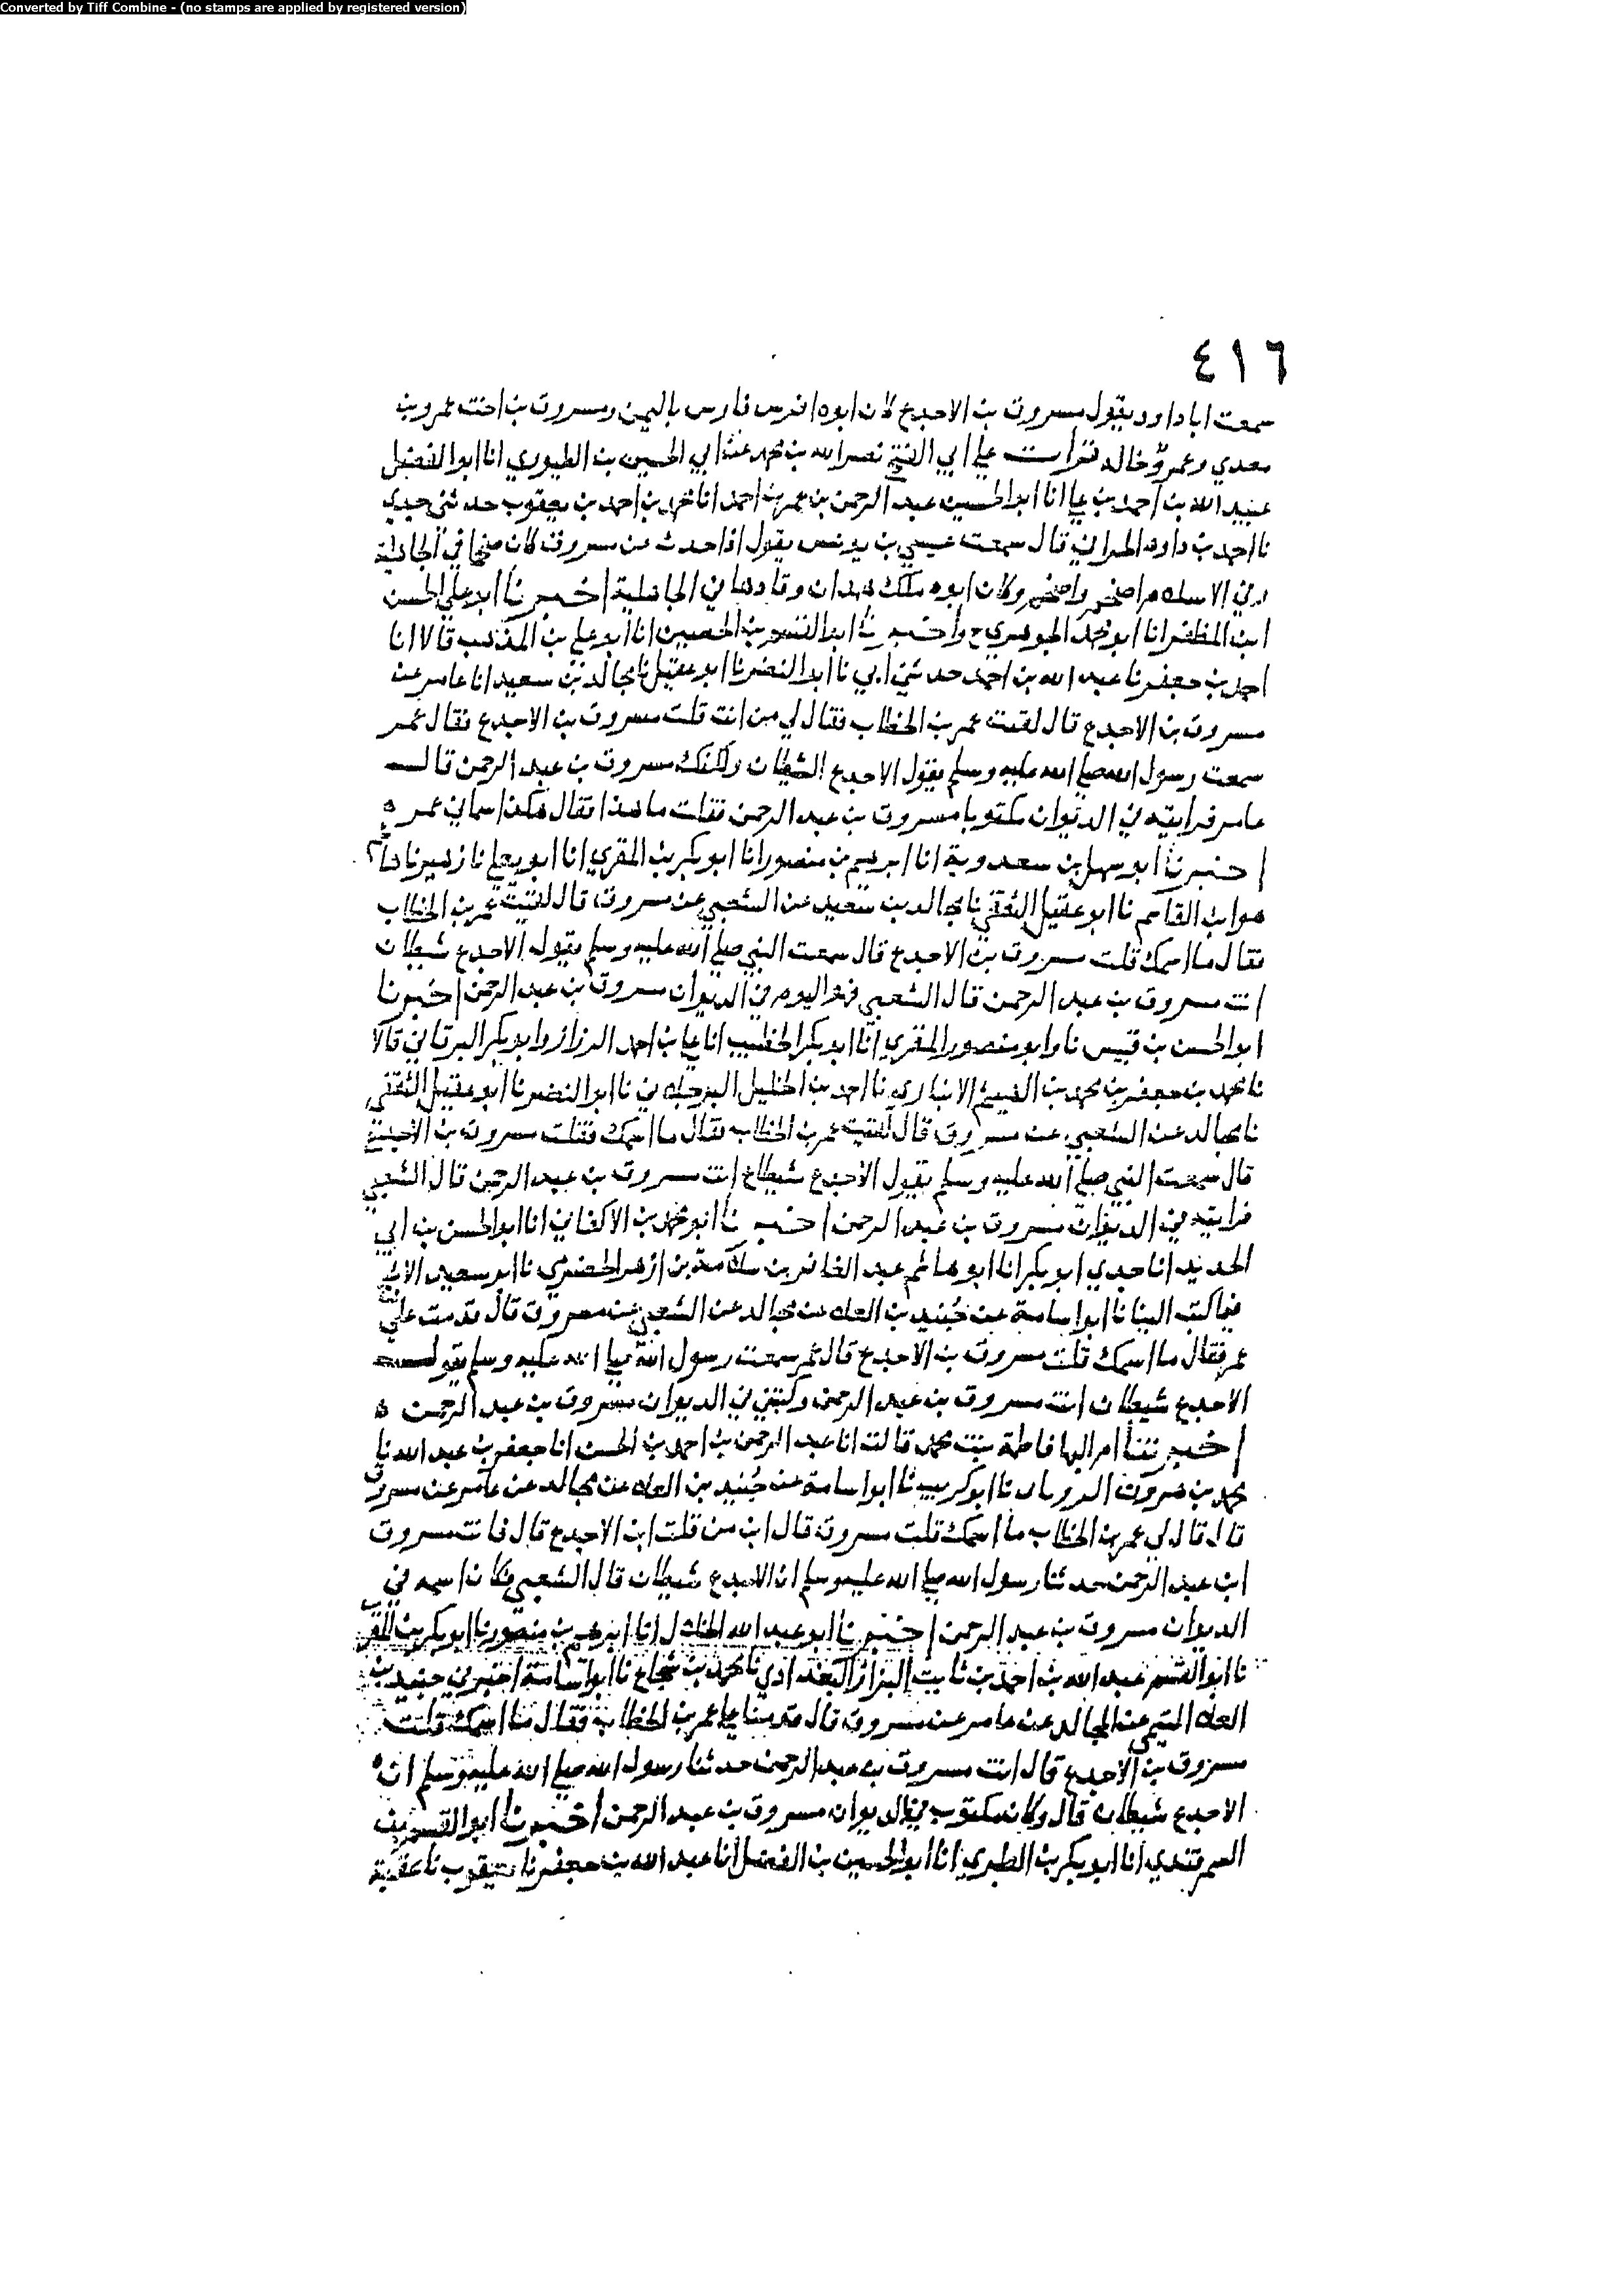 Converted by Tiff Combine - (no stamps are applied by registered version)
٤١٦
سمعت ابا داود يقول مسروق بن الاجدع كان ابوه افرس فارس باليمن ومسروق بن اخت عمرو بن
معدي وعمرو خاله قرأت على ابي الفتح نصر الله بن محمد عن ابي الحسين بن الطيوري انا ابو الفضل
عبيد الله بن احمد بن علي انا ابو الحسين عبد الرحمن بن عمر بن احمد انا محمد بن احمد بن يعقوب حدثني جدي
نا احمد بن داود الحراني قال سمعت عيسى بن يونس يقول اذا حدث عن مسروق كان ضخما في الجاهلية
وفي الاسلام اضخم واضخم وكان ابوه ملك همدان وقادها في الجاهلية اخبرنا ابو علي الحسن
ابن المظفر انا ابو محمد الجوهري ح واخبرنا ابو القسم بن الحصين انا ابو علي بن المذهب قالا انا
احمد بن جعفر نا عبد الله بن احمد حدثني ابي نا ابو النضر نا ابو عقيل نا مجالد بن سعيد انا عامر عن
مسروق بن الاجدع قال لقيت عمر بن الخطاب فقال لي من انت قلت مسروق بن الاجدع فقال عمر
سمعت رسول الله صلى الله عليه وسلم يقول الاجدع الشيطان ولكنك مسروق بن عبد الرحمن قال
عامر فرايته في الديوان مكتوبا مسروق بن عبد الرحمن فقلت ما هذا فقال هكذا سماني عمر ه
اخبرنا ابو سهل بن سعدوية انا ابرهيم بن منصور انا ابو بكر بن المقري انا ابو يعلى نا زهير نا هاشم
هو ابن القاسم نا ابو عقيل الثقفي نا مجالد بن سعيد عن الشعبي عن مسروق قال لقيت عمر بن الخطاب
فقال ما اسمك قلت مسروق بن الاجدع قال سمعت النبي صلى الله عليه وسلم يقول الاجدع شيطان
انت مسروق بن عبد الرحمن قال الشعبي فهو اليوم في الديوان مسروق بن عبد الرحمن اخبرنا
ابو الحسن بن قبيس نا وابو منصور المقري انا ابو بكر الخطيب انا علي بن احمد الرزاز وابو بكر البرقاني قالا
نا محمد بن جعفر بن محمد بن الهيثم الانباري نا احمد بن الخليل البرجلاني نا ابو النضر نا ابو عقيل الثقفي
نا مجالد عن الشعبي عن مسروق قال لقيت عمر بن الخطاب فقال ما اسمك فقلت مسروق بن الاجدع
قال سمعت النبي صلى الله عليه وسلم يقول الاجدع شيطان انت مسروق بن عبد الرحمن قال الشعبي
فرايته في الديوان مسروق بن عبد الرحمن اخبرنا ابو محمد بن الاكفاني انا ابو الحسن بن ابي
الحديد انا جدي ابو بكر انا ابو هاشم عبد الغافر بن سلامة بن ازهر الحضرمي نا ابو سعيد الاشج
فيما كتب الينا نا ابو اسامة عن جنيد بن العلاء عن مجالد عن الشعبي عن مسروق قال قدمت على
عمر فقال ما اسمك قلت مسروق بن الاجدع قال عمر سمعت رسول الله صلى الله عليه وسلم يقول
الاجدع شيطان انت مسروق بن عبد الرحمن وكتبني في الديوان مسروق بن عبد الرحمن ه
اخبرتنا ام البها فاطمة بنت محمد قالت انا عبد الرحمن بن احمد بن الحسن انا جعفر بن عبد الله نا
محمد بن هرون نا ابو كريب نا ابو اسامة عن جنيد بن العلاء عن مجالد عن عامر عن مسروق
قال قال لي عمر بن الخطاب ما اسمك قلت مسروق قال ابن من قلت ابن الاجدع قال فانت مسروق
ابن عبد الرحمن حدثنا رسول الله صلى الله عليه وسلم ان الاجدع شيطان قال الشعبي فكان اسمه في
الديوان مسروق بن عبد الرحمن اخبرنا ابو عبد الله الخلال انا ابرهيم بن منصور نا ابو بكر بن المقري
نا ابو القسم عبد الله بن احمد بن ثابت البزاز البغدادي نا محمد بن شجاع نا ابو اسامة اخبرني جنيد بن
العلاء التيمي عن المجالد عن عامر عن مسروق قال قدمنا على عمر بن الخطاب فقال ما اسمك قلت
مسروق بن الاجدع قال انت مسروق بن عبد الرحمن حدثنا رسول الله صلى الله عليه وسلم ان
الاجدع شيطان قال وكان مكتوب في الديوان مسروق بن عبد الرحمن اخبرنا ابو القسم بن
السمرقندي انا ابو بكر بن الطبري انا ابو الحسين بن الفضل انا عبد الله بن جعفر نا يعقوب نا عقبة